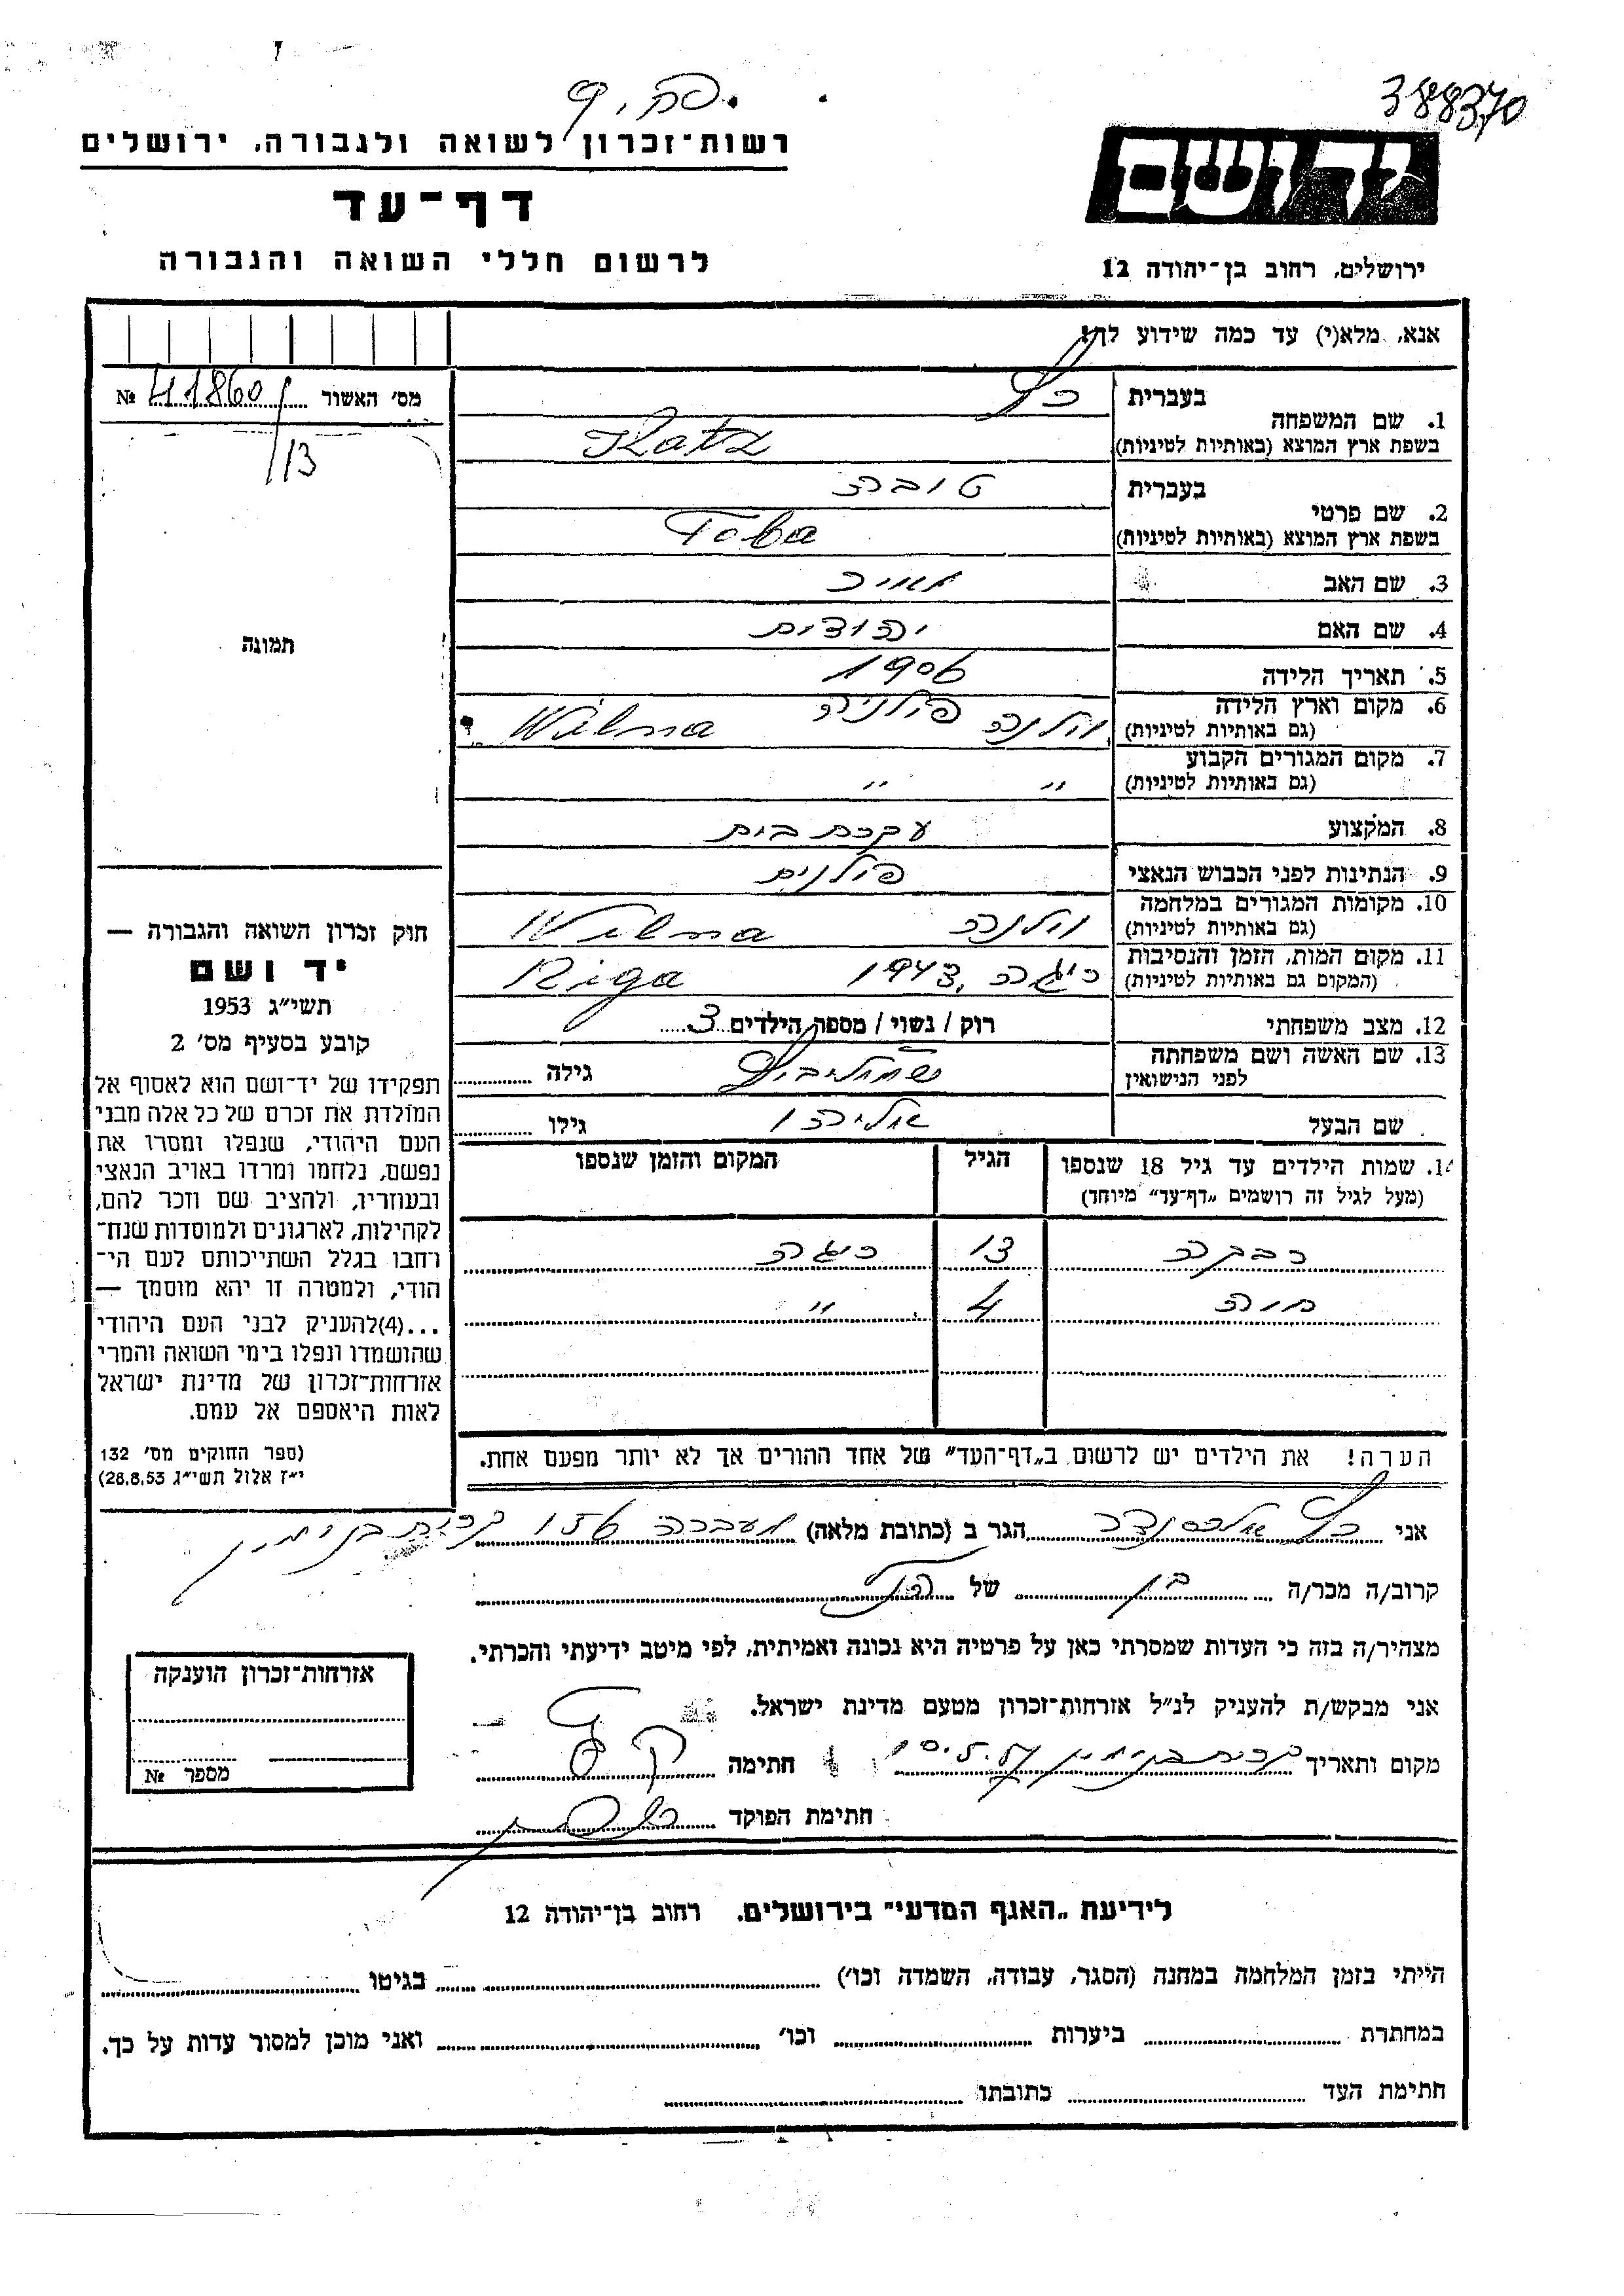 388370
פה. ק
רשות־זכרון לשואה ולגבורה, ירושלים
יד ושם
דף־עד
לרשום חללי השואה והגבורה
ירושלים, רחוב בן־יהודה 12
אנא, מלא(י) עד כמה שידוע לך!
מס׳ האשור № 41860/
/13
תמונה
1. שם המשפחה
בעברית כץ
בשפת ארץ המוצא (באותיות לטיניות) Katz
2. שם פרטי
בעברית טובה
בשפת ארץ המוצא (באותיות לטיניות) Toba
3. שם האב
4. שם האם יהודית
5. תאריך הלידה 1906
6. מקום וארץ הלידה (גם באותיות לטיניות) וילנה פולניה Wilna
7. מקום המגורים הקבוע (גם באותיות לטיניות) " "
8. המקצוע עקרת בית
9. הנתינות לפני הכבוש הנאצי פולנית
10. מקומות המגורים במלחמה (גם באותיות לטיניות) וילנה Wilna
11. מקום המות, הזמן והנסיבות (המקום גם באותיות לטיניות) ריגה, 1943 Riga
12. מצב משפחתי רוק / נשוי / מספר הילדים 3
13. שם האשה ושם משפחתה לפני הנישואין גילה
שם הבעל אליהו גילו
14. שמות הילדים עד גיל 18 שנספו (מעל לגיל זה רושמים "דף־עד" מיוחד) הגיל המקום והזמן שנספו
רבקה 13 ריגה
חוה 4 "
הערה! את הילדים יש לרשום ב"דף־העד" של אחד ההורים אך לא יותר מפעם אחת.
חוק זכרון השואה והגבורה —
יד ושם
תשי״ג 1953
קובע בסעיף מס׳ 2
תפקידו של יד־ושם הוא לאסוף אל
המולדת את זכרם של כל אלה מבני
העם היהודי, שנפלו ומסרו את
נפשם, נלחמו ומרדו באויב הנאצי
ובעוזריו, ולהציב שם וזכר להם,
לקהילות, לארגונים ולמוסדות שנח־
רחבו בגלל השתייכותם לעם הי־
הודי, ולמטרה זו יהא מוסמך —
...(4)להעניק לבני העם היהודי
שהושמדו ונפלו בימי השואה והמרי
אזרחות־זכרון של מדינת ישראל
לאות היאספם אל עמם.
(ספר החוקים מס׳ 132
י״ז אלול תשי״ג 28.8.53)
אני כץ אלכסנדר הגר ב (כתובת מלאה) מעברה 156 קרית בנימין
קרוב/ה מכר/ה בן של הנ"ל
מצהיר/ה בזה כי העדות שמסרתי כאן על פרטיה היא נכונה ואמיתית, לפי מיטב ידיעתי והכרתי.
אני מבקש/ת להעניק לנ״ל אזרחות־זכרון מטעם מדינת ישראל.
מקום ותאריך קרית בנימין 10.5.57 חתימה
חתימת הפוקד
אזרחות־זכרון הוענקה
מספר №
לידיעת "האגף המדעי" בירושלים, רחוב בן־יהודה 12
הייתי בזמן המלחמה במחנה (הסגר, עבודה, השמדה וכו׳) בגיטו
במחתרת ביערות וכו׳ ואני מוכן למסור עדות על כך.
חתימת העד כתובתו